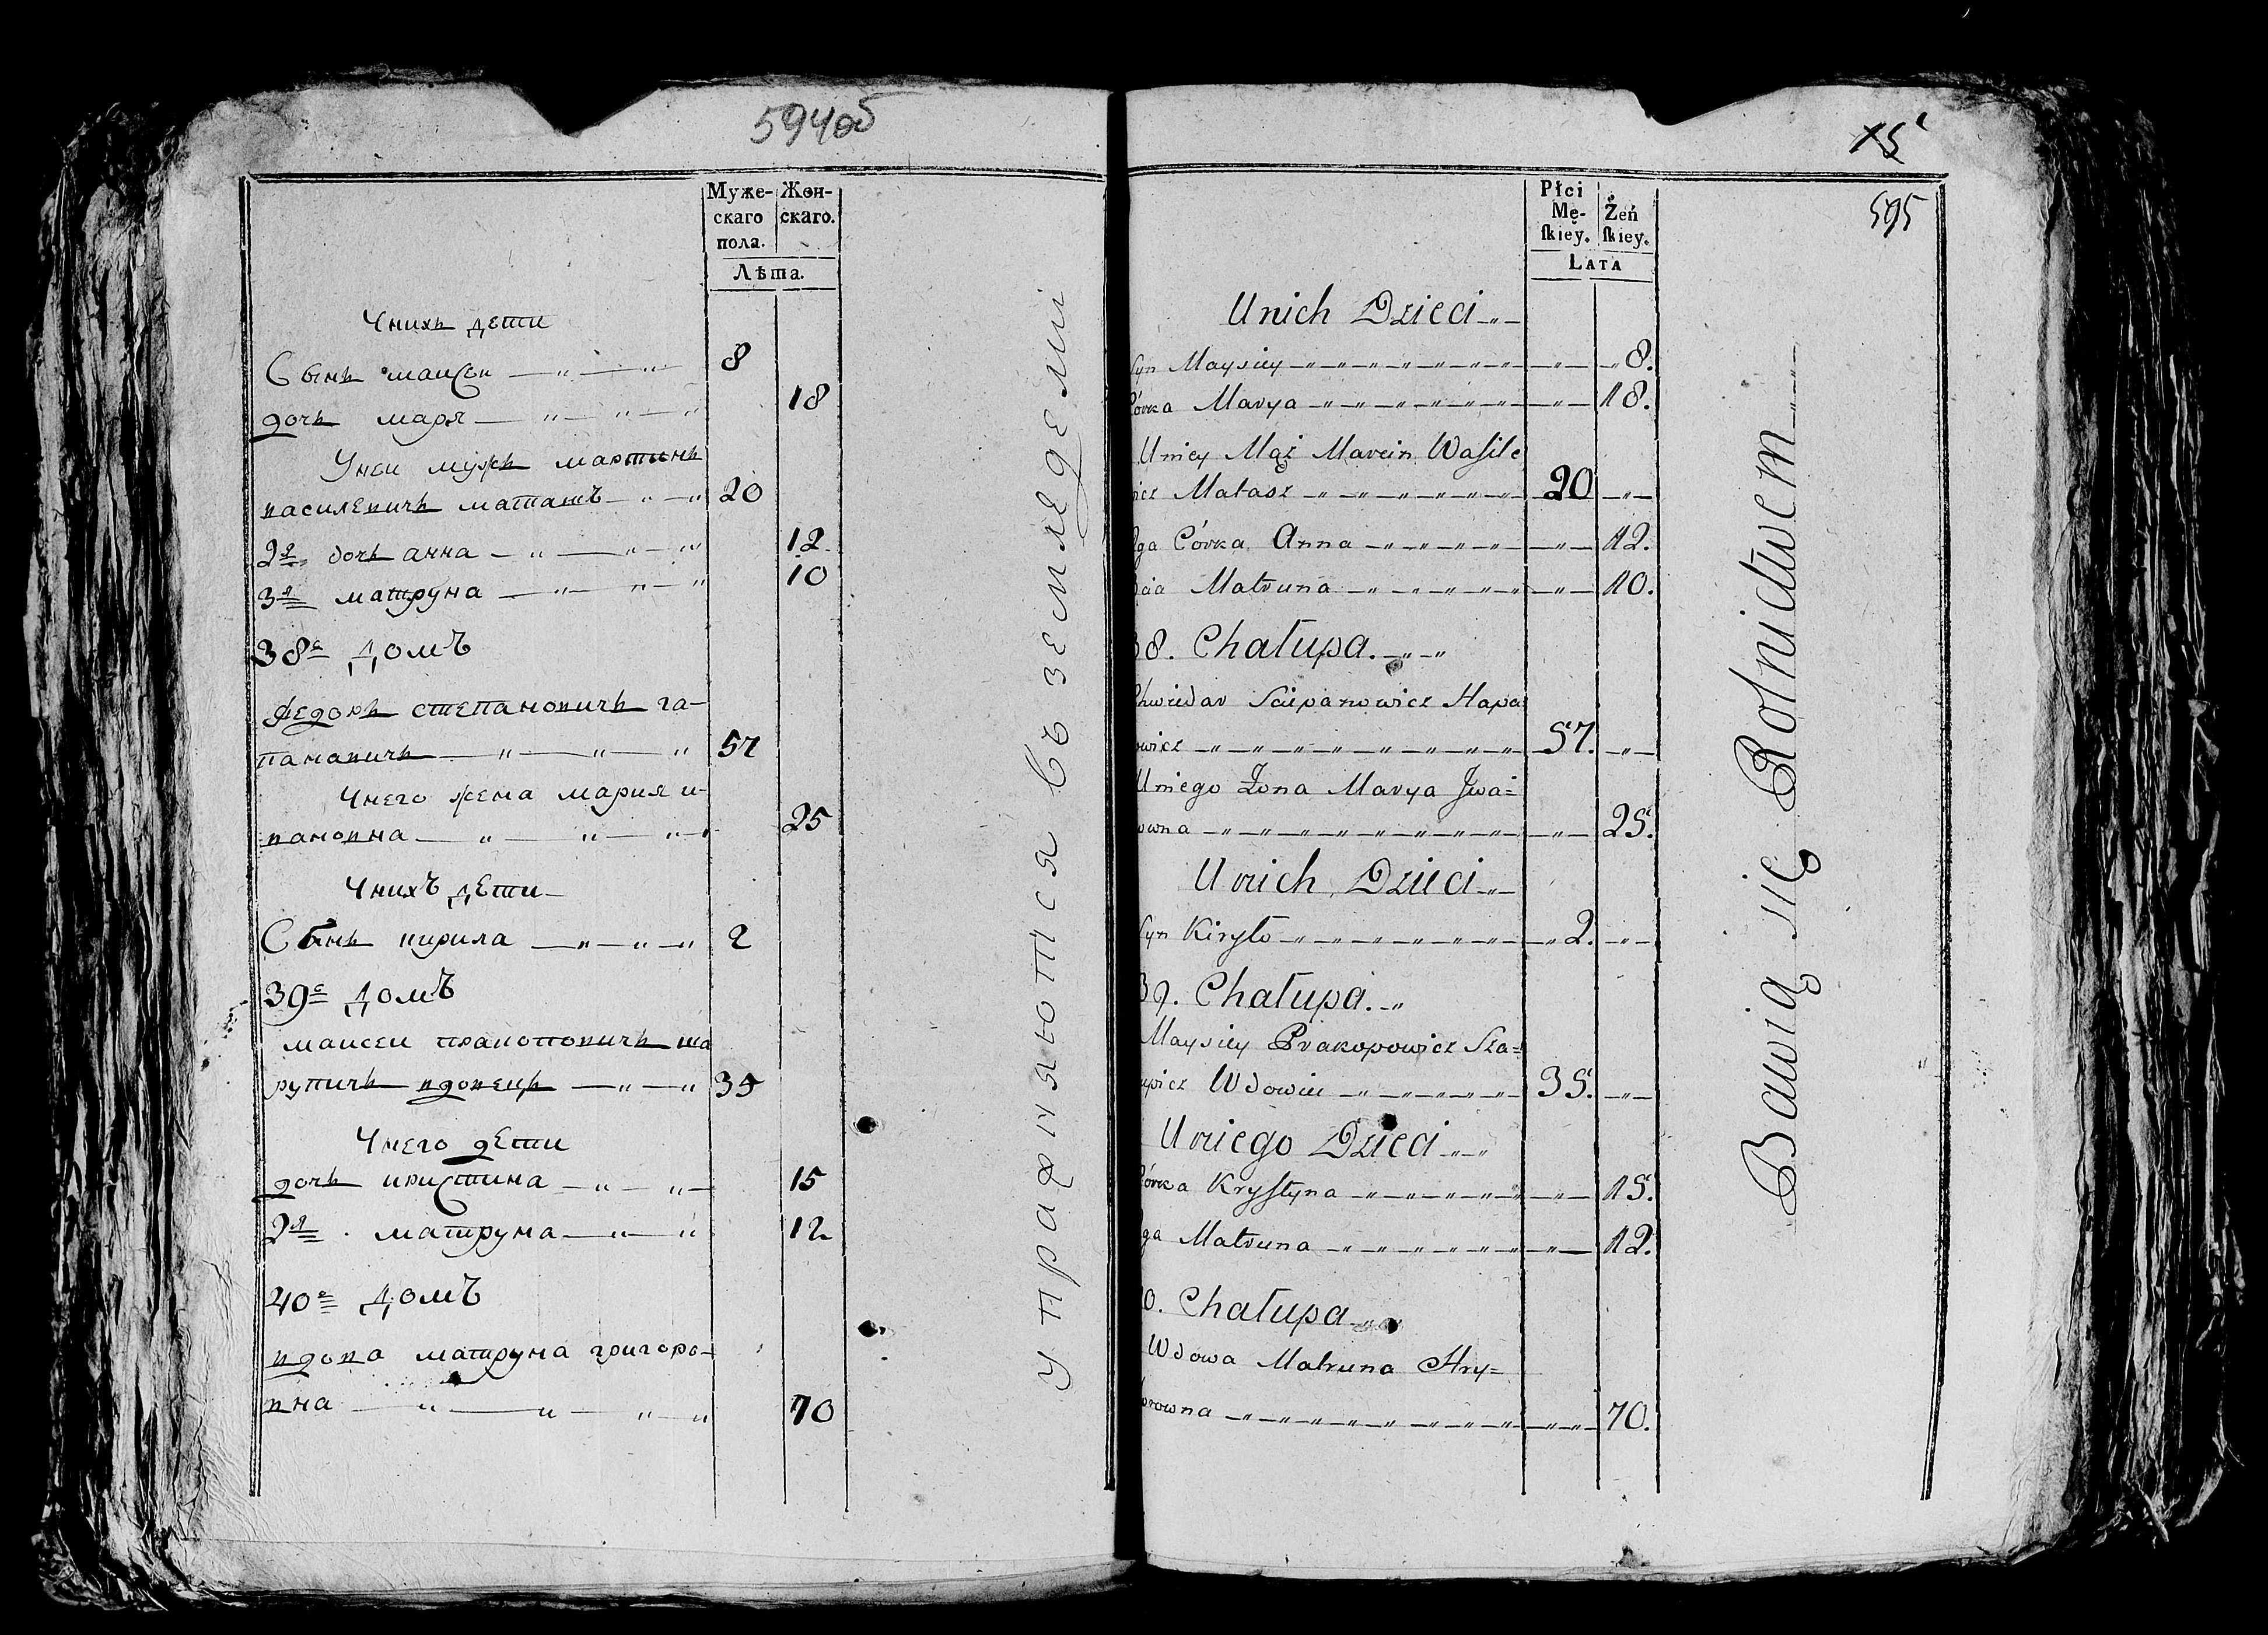 594об
Муже-
скаго
пола.
Жен-
скаго.
Лѣта.
Унихъ дети
Сынъ маисеи — „ — „ 8
дочь маря — „ — „ — „ 18
Унеи мужъ мартинъ
василевичъماташъ — „ — „ 20
2я дочь анна — „ — „ — „ 12
3я матруна — „ — „ — „ 10
38е домЪ
федоръ степановичъ га-
пановичъ — „ — „ — „ 57
Унего жена мария и-
вановна — „ — „ — „ 25
Унихъ дети —
Сынъ кирила — „ — „ — „ 2
39е домЪ
маисеи пракоповичъ ша
рупичъ вдовецъ — „ — „ 35
Унего дети
дочь кристина — „ — „ — 15
2я матруна — „ — „ 12
40е домЪ
вдова матруна григоро-
вна — „ — „ — „ — „ 70
упражняются въ земледелиі
595
Płci
Mę-
ſkiey.
Żeń
ſkiey.
LATA
Unich Dzieci „
Syn Maysiey — „ — „ 8.
Córka Marya — „ — „ 18.
Uniey Mąż Marcin Wasile
wicz Matasz — „ — „ 20 — „ —
2ga Córka Anna — „ — „ 12.
3cia Matruna — „ — „ 10.
38. Chałupa. — „ — „
Chwiedar Sciepanowicz Hapa
nowicz — „ — „ 57. — „ —
Uniego Żona Marya Jwa=
nowna — „ — „ 25.
Unich Dzieci „
Syn Kiryło — „ — „ 2. — „ —
39. Chałupa. „
Maysiey Prakopowicz Sza=
rupicz Wdowiec — „ — „ 35. — „ —
Uniego Dzieci „
Córka Krystyna — „ — „ 15.
2ga Matruna — „ — „ 12.
40. Chałupa „
Wdowa Matruna Hry=
horowna — „ — „ 70.
Bawią się Rolnictwem